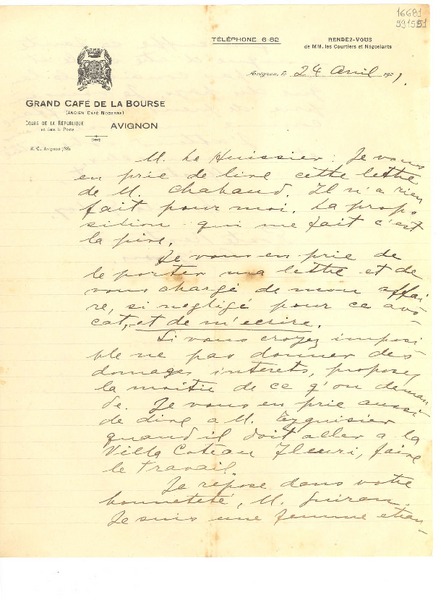 16681
591551
TÉLÉPHONE 6-82
RENDEZ-VOUS
de MM. les Courtiers et Négociants
Avignon, le 24 avril 19
GRAND CAFE DE LA BOURSE
(ANCIEN CAFÉ
COURS DE LA RÉPUBLIQUE
AVIGNON
R. C. Avignon
M. le Huissier: Je vous
en prie de lire cette lettre
de M. Chabaud. Il n'a rien
fait pour moi. La propo-
sition qui me fait c'est
la pire.
Je vous en prie de
le porter ma lettre et de
vous chargé de mon affai
re, si negligé pour ce avo-
cat, et de m'ecrire.
Si vous croyez imposi
ble ne pas donner des
domages interets, propose
la moitié de ce q'on deman
de. Je vous en prie aussi
de dire a M.
quand il doit aller a la
Villa Coteau Fleuri, faire
le travail.
Je repose dans votre
honneteté, M. Guiran.
Je suis une femme etran-